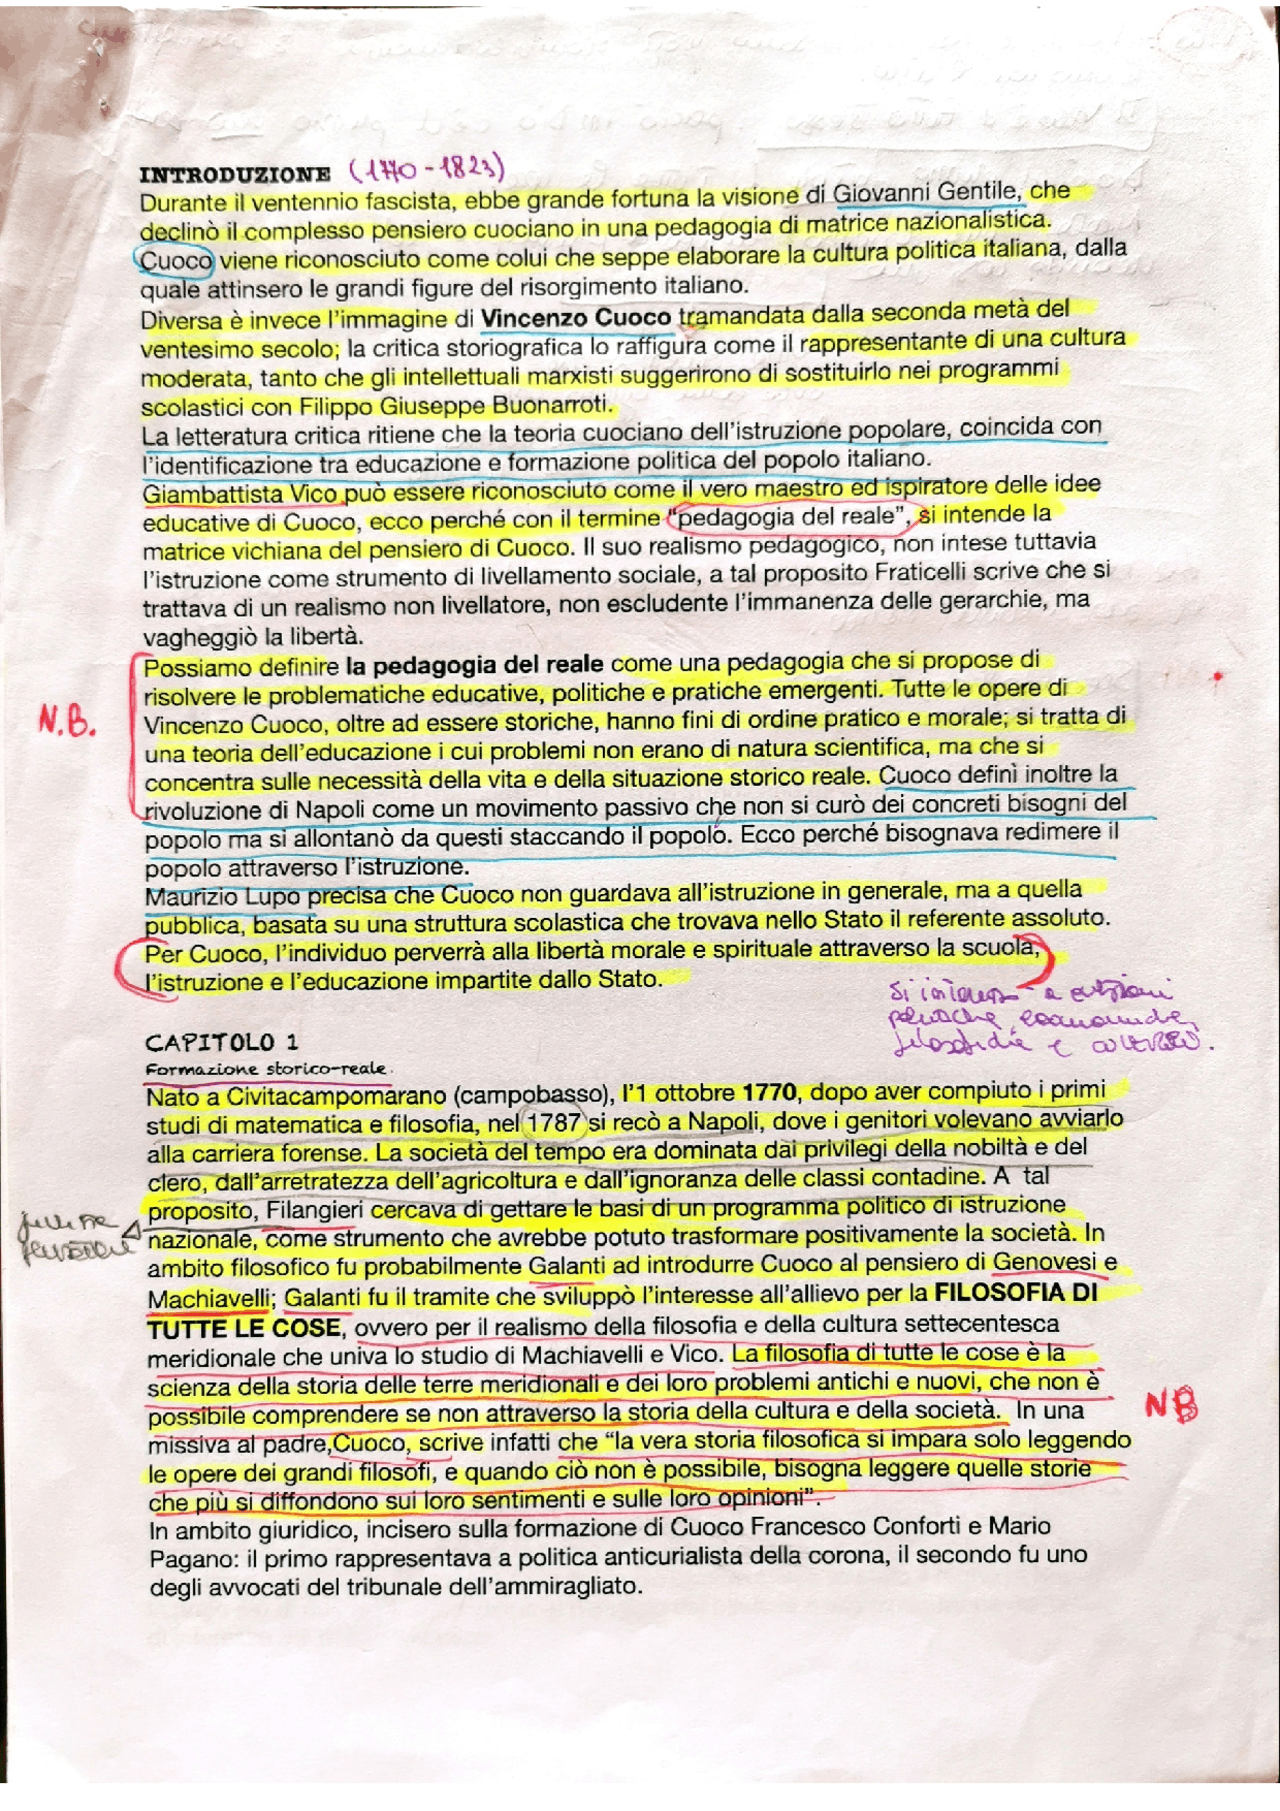 INTRODUZIONE (1770-1823)
Durante il ventennio fascista, ebbe grande fortuna la visione di Giovanni Gentile, che
declinò il complesso pensiero cuociano in una pedagogia di matrice nazionalistica.
Cuoco viene riconosciuto come colui che seppe elaborare la cultura politica italiana, dalla
quale attinsero le grandi figure del risorgimento italiano.
Diversa è invece l'immagine di Vincenzo Cuoco tramandata dalla seconda metà del
ventesimo secolo; la critica storiografica lo raffigura come il rappresentante di una cultura
moderata, tanto che gli intellettuali marxisti suggerirono di sostituirlo nei programmi
scolastici con Filippo Giuseppe Buonarroti.
La letteratura critica ritiene che la teoria cuociano dell'istruzione popolare, coincida con
l'identificazione tra educazione e formazione politica del popolo italiano.
Giambattista Vico può essere riconosciuto come il vero maestro ed ispiratore delle idee
educative di Cuoco, ecco perché con il termine "pedagogia del reale", si intende la
matrice vichiana del pensiero di Cuoco. Il suo realismo pedagogico, non intese tuttavia
l'istruzione come strumento di livellamento sociale, a tal proposito Fraticelli scrive che si
trattava di un realismo non livellatore, non escludente l'immanenza delle gerarchie, ma
vagheggiò la libertà.
Possiamo definire la pedagogia del reale come una pedagogia che si propose di
risolvere le problematiche educative, politiche e pratiche emergenti. Tutte le opere di
N.B. Vincenzo Cuoco, oltre ad essere storiche, hanno fini di ordine pratico e morale; si tratta di
una teoria dell'educazione i cui problemi non erano di natura scientifica, ma che si
concentra sulle necessità della vita e della situazione storico reale. Cuoco definì inoltre la
rivoluzione di Napoli come un movimento passivo che non si curò dei concreti bisogni del
popolo ma si allontanò da questi staccando il popolo. Ecco perché bisognava redimere il
popolo attraverso l'istruzione.
Maurizio Lupo precisa che Cuoco non guardava all'istruzione in generale, ma a quella
pubblica, basata su una struttura scolastica che trovava nello Stato il referente assoluto.
Per Cuoco, l'individuo perverrà alla libertà morale e spirituale attraverso la scuola,
l'istruzione e l'educazione impartite dallo Stato.
e
CAPITOLO 1
Formazione storico-reale.
Nato a Civitacampomarano (campobasso), l'1 ottobre 1770, dopo aver compiuto i primi
studi di matematica e filosofia, nel 1787 si recò a Napoli, dove i genitori volevano avviarlo
alla carriera forense. La società del tempo era dominata dai privilegi della nobiltà e del
clero, dall'arretratezza dell'agricoltura e dall'ignoranza delle classi contadine. A tal
proposito, Filangieri cercava di gettare le basi di un programma politico di istruzione
nazionale, come strumento che avrebbe potuto trasformare positivamente la società. In
ambito filosofico fu probabilmente Galanti ad introdurre Cuoco al pensiero di Genovesi e
Machiavelli; Galanti fu il tramite che sviluppò l'interesse all'allievo per la FILOSOFIA DI
TUTTE LE COSE, ovvero per il realismo della filosofia e della cultura settecentesca
meridionale che univa lo studio di Machiavelli e Vico. La filosofia di tutte le cose è la
scienza della storia delle terre meridionali e dei loro problemi antichi e nuovi, che non è
possibile comprendere se non attraverso la storia della cultura e della società. In una NB
missiva al padre,Cuoco, scrive infatti che "la vera storia filosofica si impara solo leggendo
le opere dei grandi filosofi, e quando ciò non è possibile, bisogna leggere quelle storie
che più si diffondono sui loro sentimenti e sulle loro opinioni".
In ambito giuridico, incisero sulla formazione di Cuoco Francesco Conforti e Mario
Pagano: il primo rappresentava a politica anticurialista della corona, il secondo fu uno
degli avvocati del tribunale dell'ammiragliato.